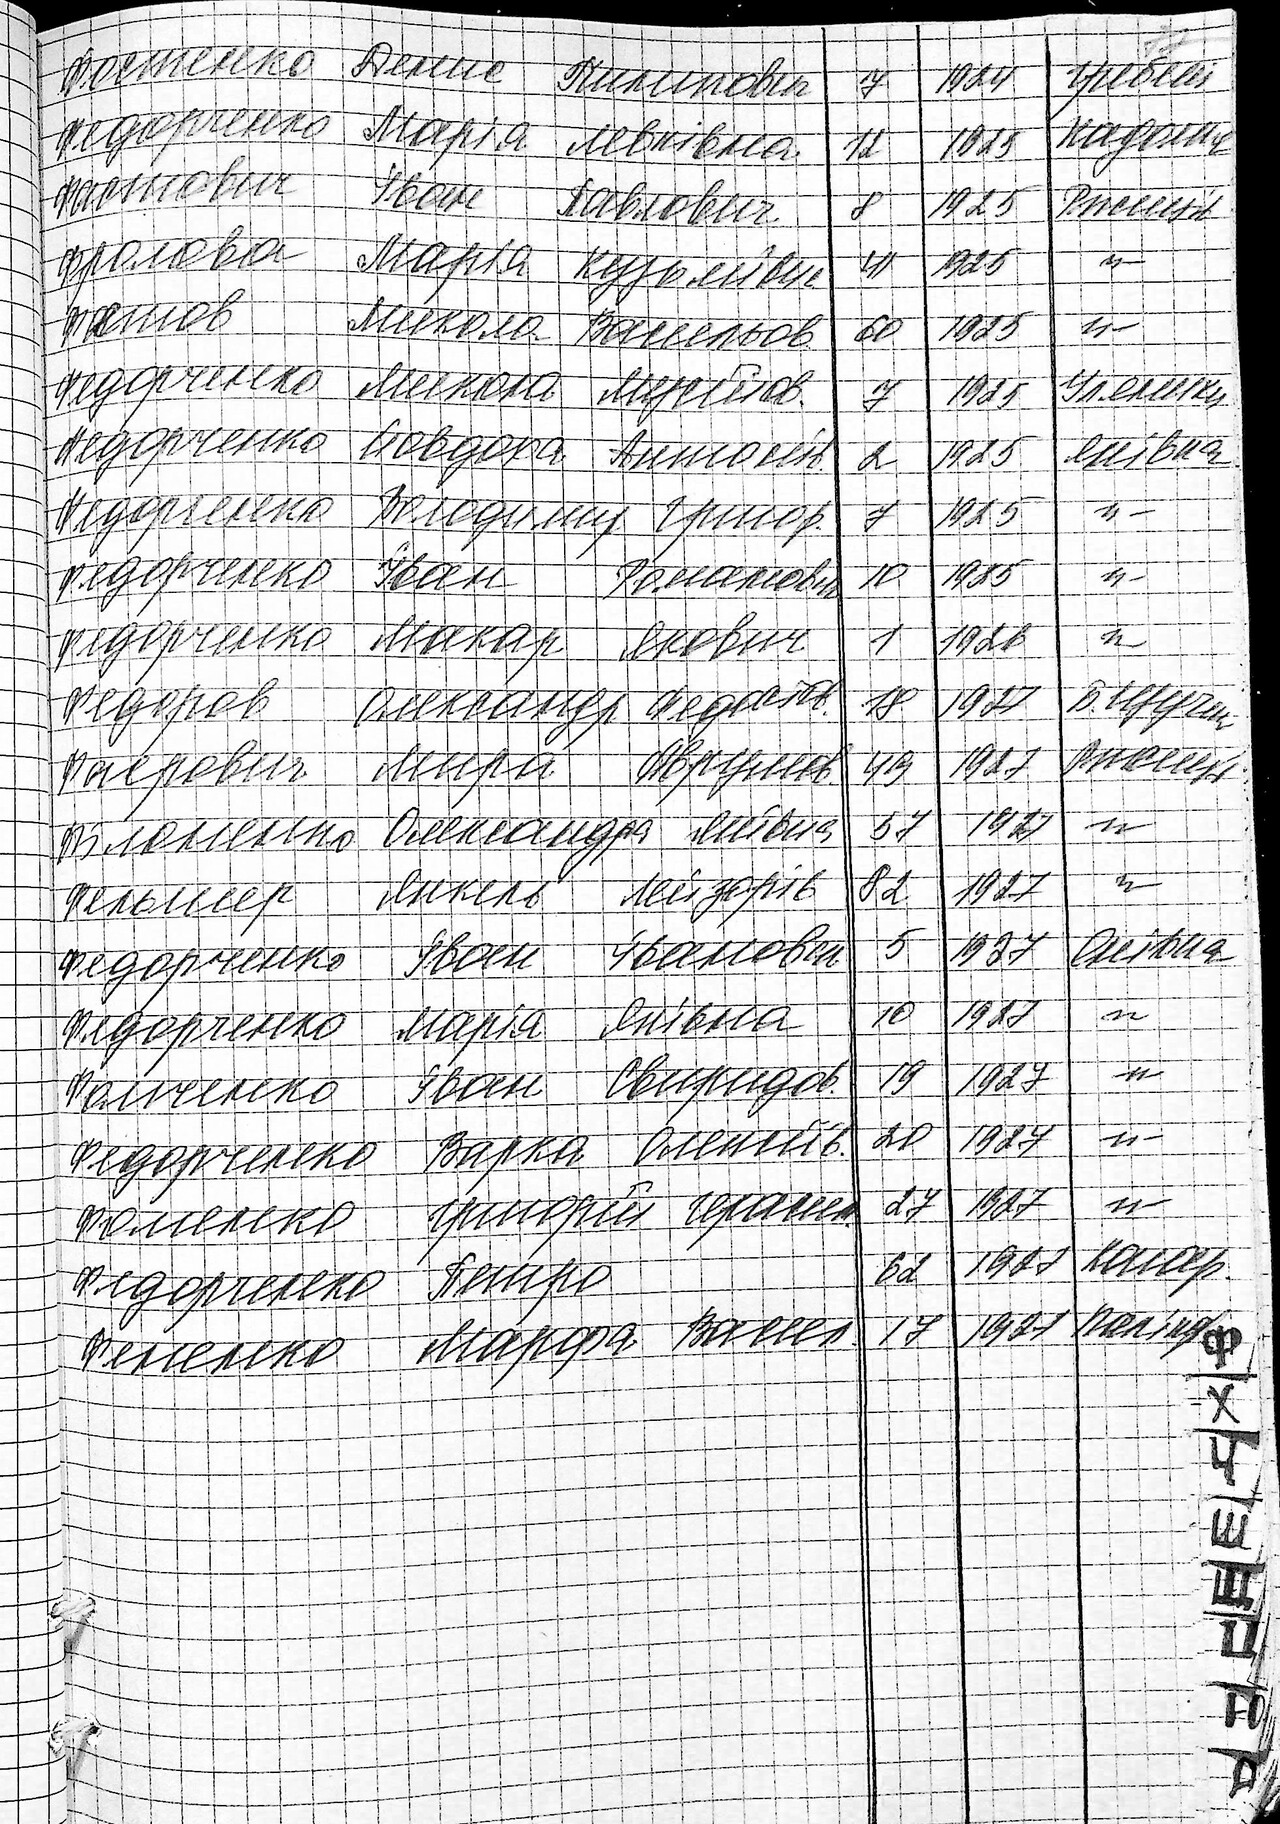 Фостенко Денис Пилипович 7 1924 Гребені
Федорченко Марія Левківна 12 1925
Іван Павлович 8 1925 Ржищів
Фролова Марія Кузьмівна 41 1925 -"-
Микола Васильов. 60 1925 -"-
Федорченко Микола Мусійов. 7 1925 Уляники
Федорченко Явдоха Антонів. 2 1925 Юхівка
Федорченко Володимир Григор. 7 1925 -"-
Федорченко Іван Романович 10 1925 -"-
Федорченко Макар Якович 1 1926 -"-
Федоров Олександр 18 1927
Фаєрович Мира Аврумов. 49 1927 Ржищів
Філоненко Олександра Яківна 57 1927 -"-
Фельшер Янкель Лейзорів 82 1927 -"-
Федорченко Іван Іванович 5 1927
Федорченко Марія Яківна 10 1927 -"-
Іван Свиридов. 19 1927 -"-
Федорченко Варка Олексіїв. 20 1927 -"-
Фоменко Григорій Герасим 27 1927 -"-
Федорченко Петро 62 1927
Фененко Марфа Васил. 17 1927
Ф
Х
Ч
Ш
Щ
Ю